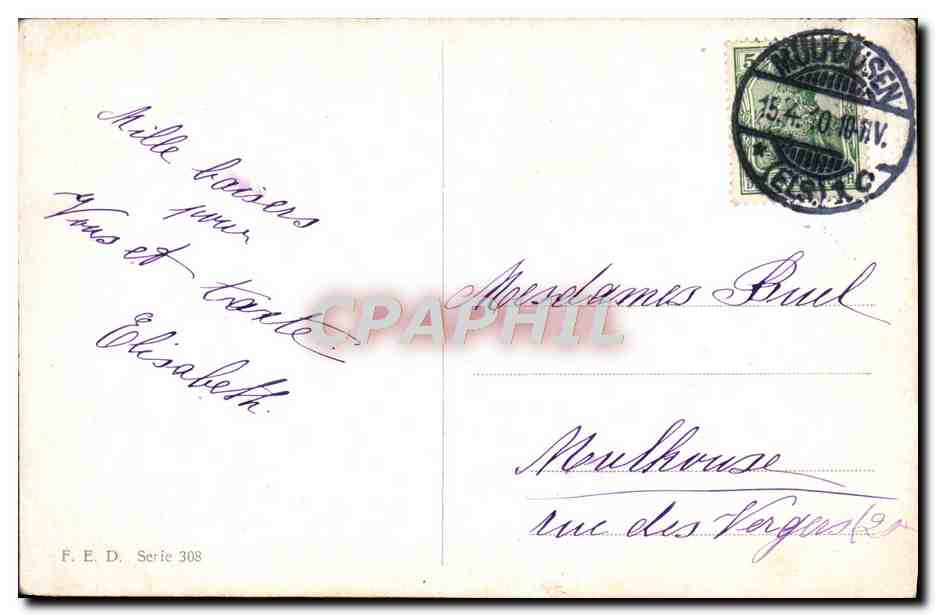 Mille baisers
pour
Vous et tante
Elisabeth.
F. E. D. Serie 308
5
MÜLHAUSEN
15.4.10.10-11V.
* (ELS) 1 C
Mesdames Buel
CPAPHIL
Mulhouse
rue des Vergers